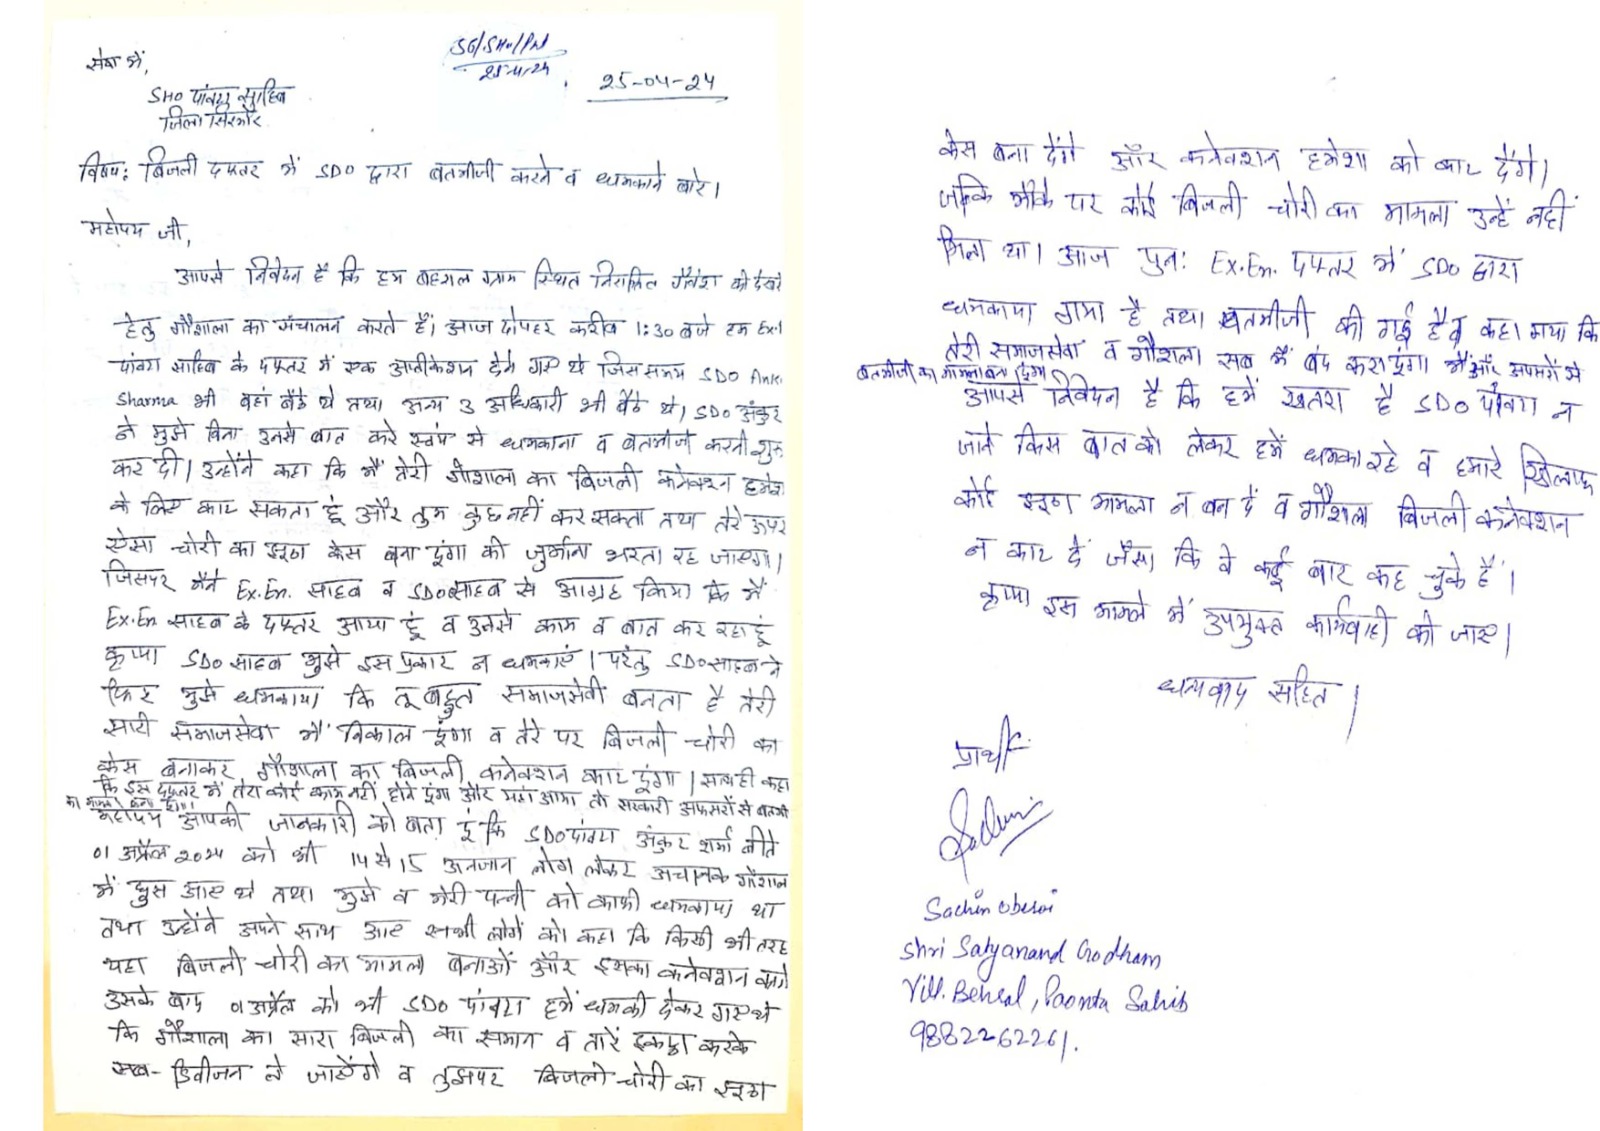 सेवा में,
25-04-24
SHO पांवटा साहिब
जिला सिरमौर
विषय: बिजली दफ्तर में SDO द्वारा बतमीजी करने व धमकाने बारे।
महोदय जी,
आपसे निवेदन है कि हम बेहराल ग्राम स्थित निराश्रित गौवंश की देखरे
हेतु गौशाला का संचालन करते हैं। आज दोपहर करीब 1:30 बजे हम Ex.
पांवटा साहिब के दफ्तर में एक आप्लीकेशन देने गए थे जिस समय SDO Anku
Sharma भी वहां बैठे थे तथा अन्य 3 अधिकारी भी बैठे थे। SDO अंकुर
ने मुझे बिना उनसे बात करे स्वयं से धमकाना व बतमीजी करनी शुरू
कर दी। उन्होंने कहा कि मैं तेरी गौशाला का बिजली कनेक्शन हमेशा
के लिए काट सकता हूं और तुम कुछ नहीं कर सकता तथा तेरे ऊपर
ऐसा चोरी का झूठा केस बना दूंगा की जुर्माना भरता रह जाएगा।
जिसपर मैंने Ex.En. साहब व SDO साहब से आग्रह किया कि मैं
Ex.En साहब के दफ्तर आया हूं व उनसे काम व बात कर रहा हूं
कृपा SDO साहब मुझे इस प्रकार न धमकाएं। परंतु SDO साहब ने
फिर मुझे धमकाया कि तू बहुत समाजसेवी बनता है तेरी
सारी समाजसेवा मैं निकाल दूंगा व तेरे पर बिजली चोरी का
केस बनाकर गौशाला का बिजली कनेक्शन काट दूंगा। साथ ही कहा
कि इस दफ्तर में तेरा कोई काम नहीं होने दूंगा और यहां आया तो सरकारी अफसरों से बतमी
का मामला बना दूंगा।
महोदय आपकी जानकारी को बता दूं कि SDO पांवटा अंकुर शर्मा बीते
01 अप्रैल 2024 को भी 14 से 15 अनजान लोग लेकर अचानक गौशाला
में घुस आए थे तथा मुझे व मेरी पत्नी को काफी धमकाया था
तथा उन्होंने अपने साथ आए सभी लोगों को कहा कि किसी भी तरह
यहा बिजली चोरी का मामला बनाओं और इसका कनेक्शन काटो
उसके बाद 01 अप्रैल को भी SDO पांवटा हमें धमकी देकर गए थे
कि गौशाला का सारा बिजली का समान व तारें इकट्ठा करके
सब-डिवीजन ले जाएंगे व तुझपर बिजली चोरी का झूठा
केस बना देंगे और कनेक्शन हमेशा को काट देंगे।
जबकि मौके पर कोई बिजली चोरी का मामला उन्हें नहीं
मिला था। आज पुन: Ex.En. दफ्तर में SDO द्वारा
धमकाया गया है तथा बतमीजी की गई है व कहा गया कि
तेरी समाजसेवा व गौशाला सब मैं बंद करा दूंगा और अफसरों से
बतमीजी का मामला बना दूंगा
आपसे निवेदन है कि हमें खतरा है SDO पांवटा न
जाने किस बात को लेकर हमें धमका रहे व हमारे खिलाफ
कोई झूठा मामला न बना दें व गौशाला बिजली कनेक्शन
न काट दें जैसा कि वे कई बार कह चुके हैं।
कृपा इस मामले में उपयुक्त कार्यवाही की जाए।
धन्यवाद सहित।
प्रार्थी
Sachin Oberoi
Shri Satyanand Godham
Vill. Behral, Paonta Sahib
9882262261.